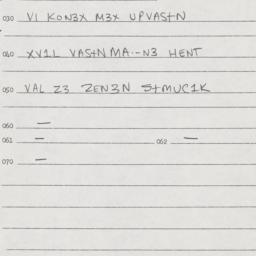 030 VI KON3X M3X UPVAStN
040 XV1L VAStNMA--N3 HENT
050 VAL Z3 ZEN3N StMUC1K
060 —
061 — 062 —
070 —